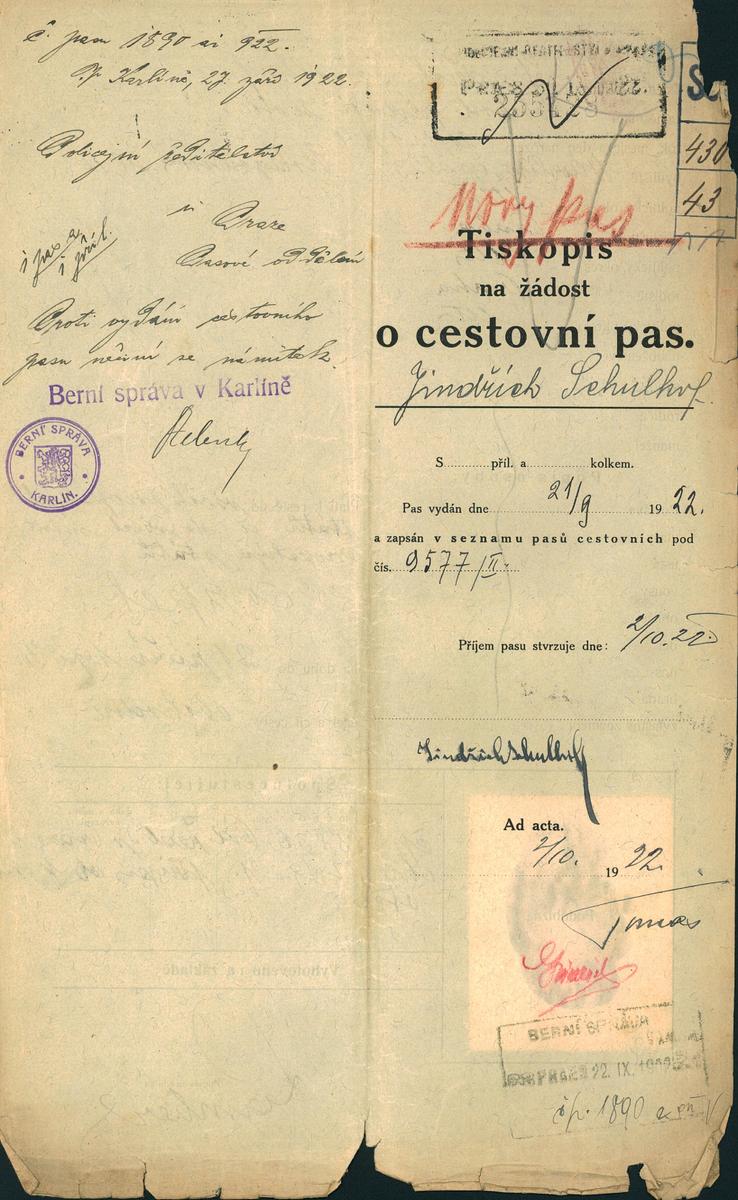 č. pasu 1890 ai 922.
V Karlíně, 27. září 1922.
Policejní ředitelství
v Praze
Pasové oddělení
1 pas a
1 příl.
Proti vydání cestovního
pasu nečiní se námitek.
Berní správa v Karlíně
BERNÍ SPRÁVA
KARLÍN.
430
43
Nový pas
Tiskopis
na žádost
o cestovní pas.
Jindřich Schulhof
S příl. a kolkem.
Pas vydán dne 21/9 1922.
a zapsán v seznamu pasů cestovních pod
čís. 9577/II.
Příjem pasu stvrzuje dne: 2/10.22.
Jindřich Schulhof
Ad acta.
2/10. 1922.
BERNÍ SPRÁVA
22. IX.
čp. 1890